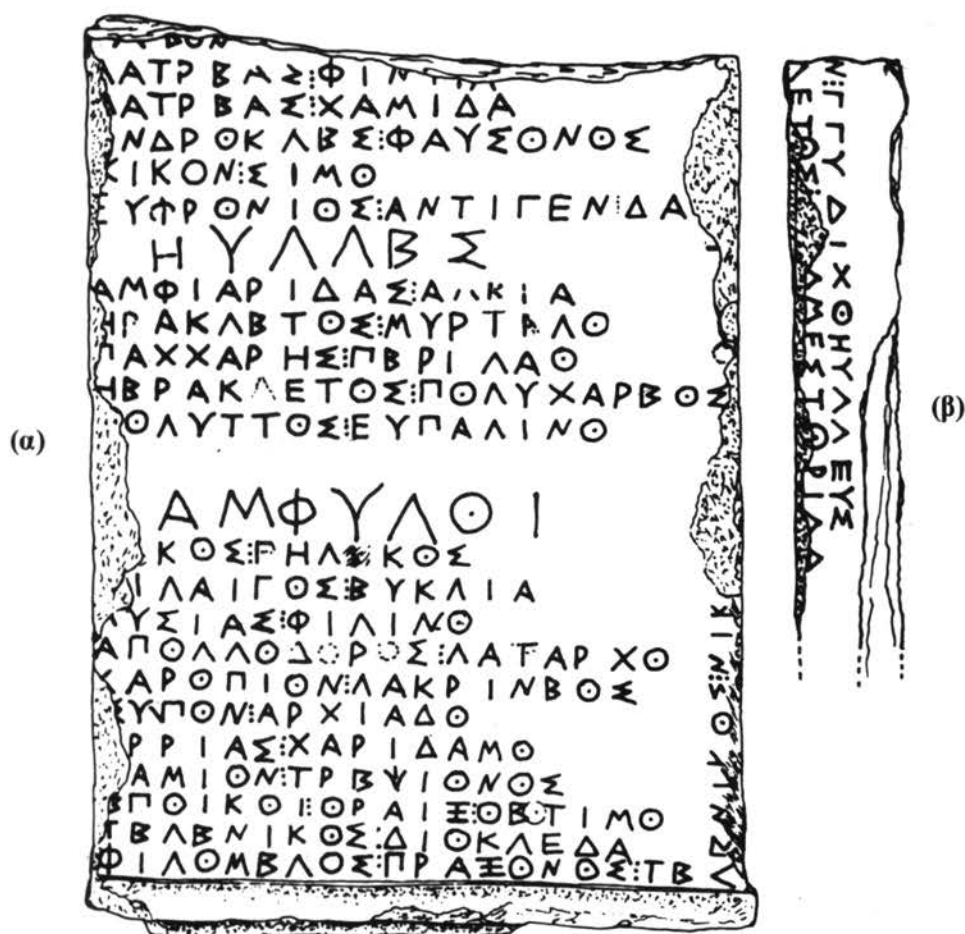 ΛΑΤΡΒΑΣ⋮ΦΙΝΤΙΑ
ΛΑΤΡΒΑΣ⋮ΧΑΜΙΔΑ
ΝΔΡΟΚΛΒΣ⋮ΦΑΥΣΟΝΟΣ
ΚΙΚΟΝ⋮ΣΙΜΟ
ΕΥΦΡΟΝΙΟΣ⋮ΑΝΤΙΓΕΝΙΔΑ
ΗΥΛΛΒΣ
ΑΜΦΙΑΡΙΔΑΣ⋮ΑΛΚΙΑ
ΗΡΑΚΛΒΤΟΣ⋮ΜΥΡΤΑΛΟ
ΠΑΧΧΑΡΗΣ⋮ΠΒΡΙΛΑΟ
ΗΒΡΑΚΛΕΤΟΣ⋮ΠΟΛΥΧΑΡΒΟΣ
ΟΛΥΤΤΟΣ⋮ΕΥΠΑΛΙΝΟ
ΑΜΦΥΛΟΙ
ΚΟΣ⋮
ΙΛΑΙΓΟΣ⋮ΒΥΚΛΙΑ
ΛΥΣΙΑΣ⋮ΦΙΛΙΝΟ
ΑΠΟΛΛΟΔΟΡΟΣ⋮ΛΑΤΑΡΧΟ
ΧΑΡΟΠΙΟΝ⋮ΛΑΚΡΙΝΒΟΣ
ΕΥΠΟΝ⋮ΑΡΧΙΑΔΟ
ΡΡΙΑΣ⋮ΧΑΡΙΔΑΜΟ
ΑΜΙΟΝ⋮ΤΡΒΨΙΟΝΟΣ
ΒΠΟΙΚΟΙ⋮ΟΡΑΙΞ⋮ΟΒΟΤΙΜΟ
ΤΒΛΒΝΙΚΟΣ⋮ΔΙΟΚΛΕΔΑ
ΦΙΛΟΜΒΛΟΣ⋮ΠΡΑΞΟΝΟΣ⋮ΤΒ
ΛΒΝΙΚΟΣ⋮ΝΙΚ
(α)
Ν⋮ΓΓΥΔΙΧΟΗΥΛΛΕΥΣ
ΔΕΤΟΣ⋮ΔΑΜΕΣΤΟΡΙΔΑ
(β)